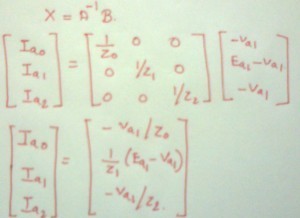 X = A⁻¹B.
[Ia0 Ia1 Ia2] = [1/Z0 0 0; 0 1/Z1 0; 0 0 1/Z2] [-Va1; Ea1-Va1; -Va1]
[Ia0 Ia1 Ia2] = [-Va1/Z0; 1/Z1 (Ea1-Va1); -Va1/Z2.]